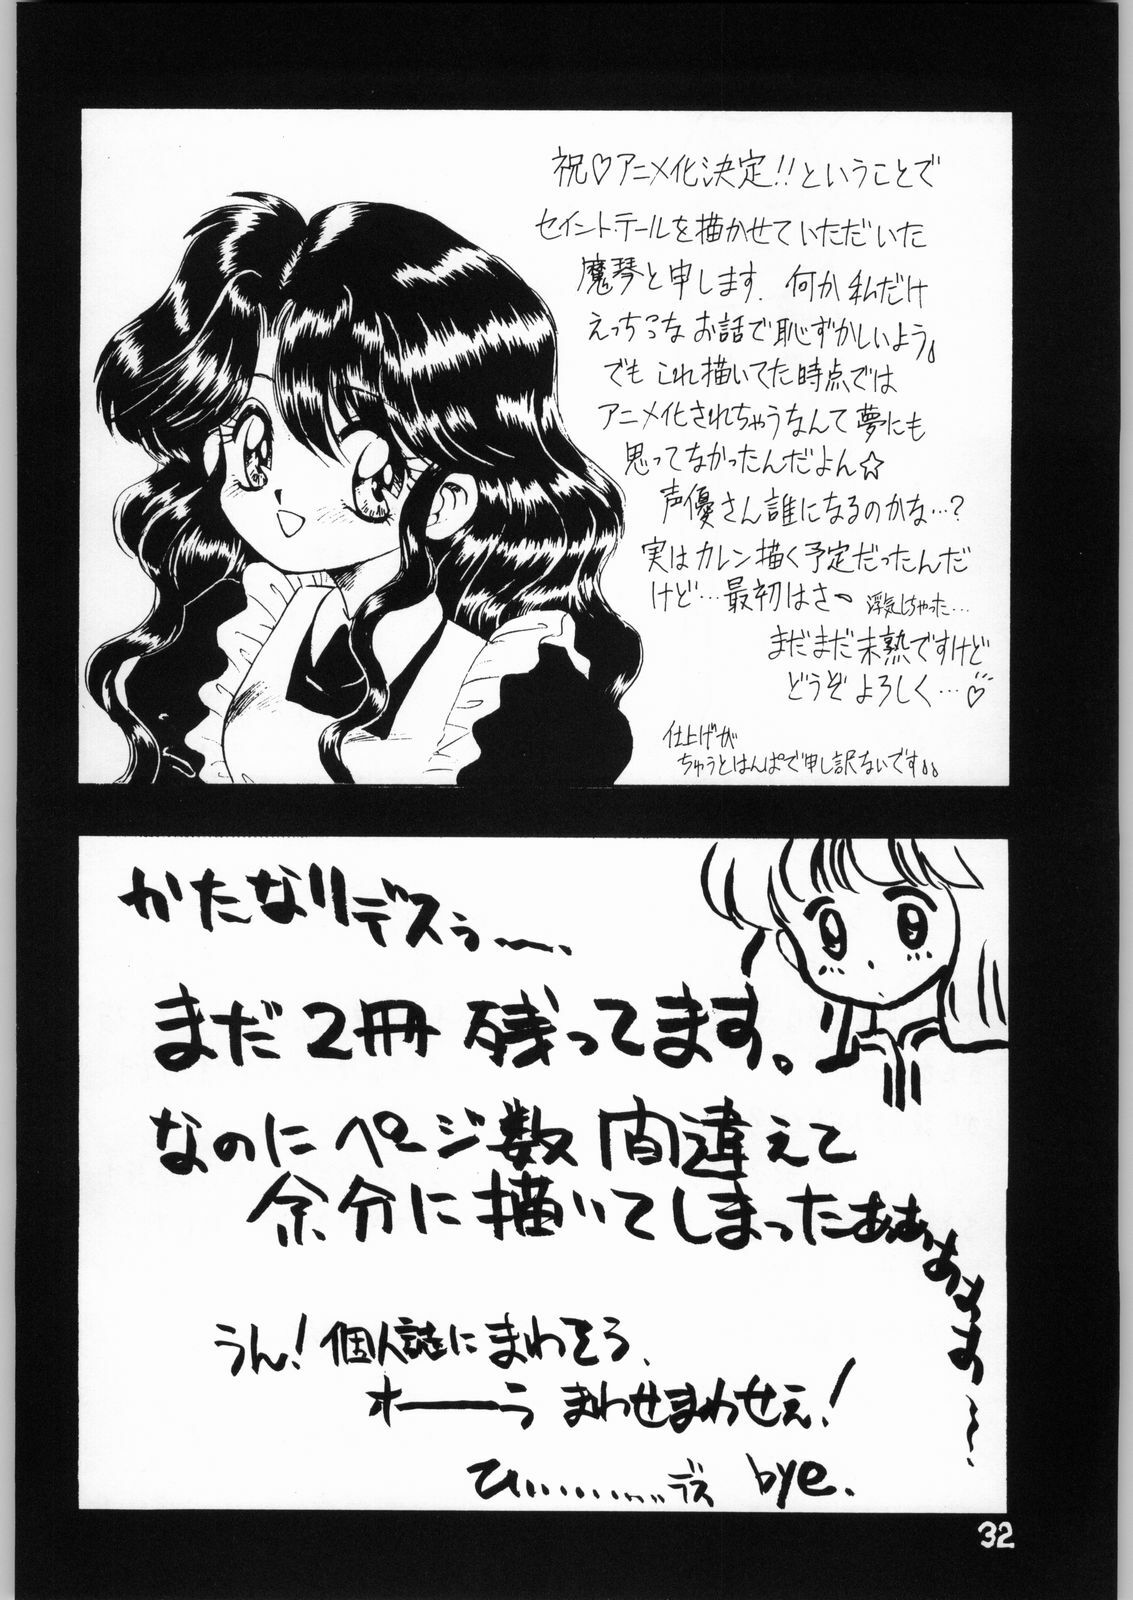 祝♡アニメ化決定!!ということで
セイントテールを描かせていただいた
魔琴と申します. 何か私だけ
えっちっな お話で恥ずかしいよう
でも これ描いてた時点では
アニメ化されちゃうなんて夢にも
思ってなかったんだよん☆
声優さん誰になるのかな…?
実はカレン描く予定だったんだ
けど…最初はさ〜 浮気しちゃった…
まだまだ未熟ですけど
どうぞ よろしく…♡
仕上げが
ちゅうとはんぱで申し訳ないです
かたなりデスぅ〜、
まだ2冊 残ってます。
なのにページ数 間違えて
余分に描いてしまったぁぁぁぁぁぁ〜〜.
うん! 個人誌にまわそう、
オーーう まわせまわせぇ!
ひぃ………デス bye.
32